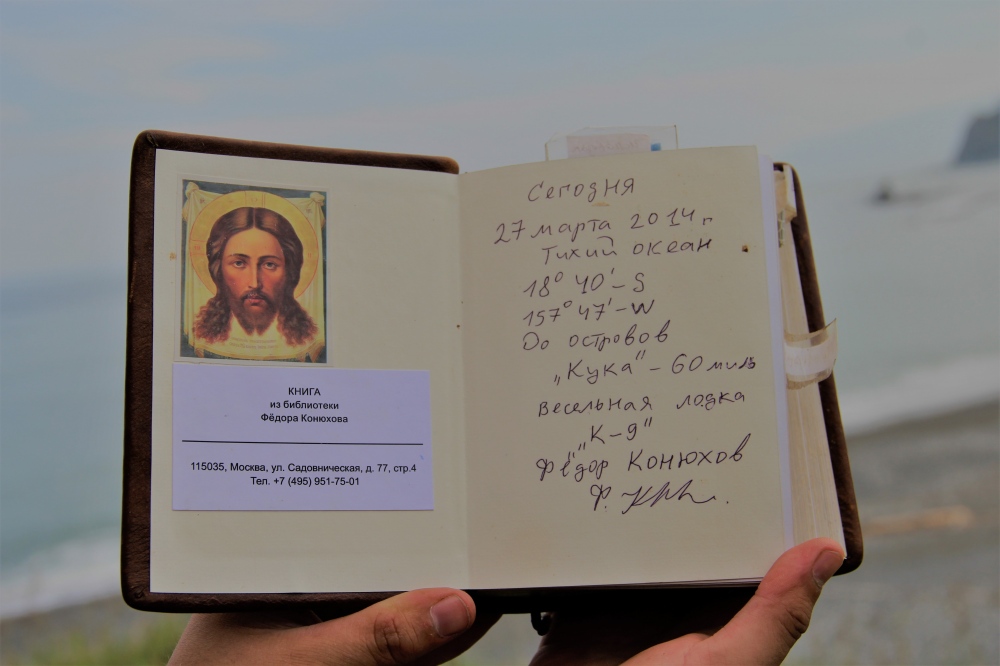 КНИГА
из библиотеки
Фёдора Конюхова
115035, Москва, ул. Садовническая, д. 77, стр.4
Тел. +7 (495) 951-75-01
Сегодня
27 марта 2014 г
Тихий океан
18° 40'-S
157° 47'-W
До островов
„Кука" - 60 миль
весельная лодка
„К-9"
Фёдор Конюхов